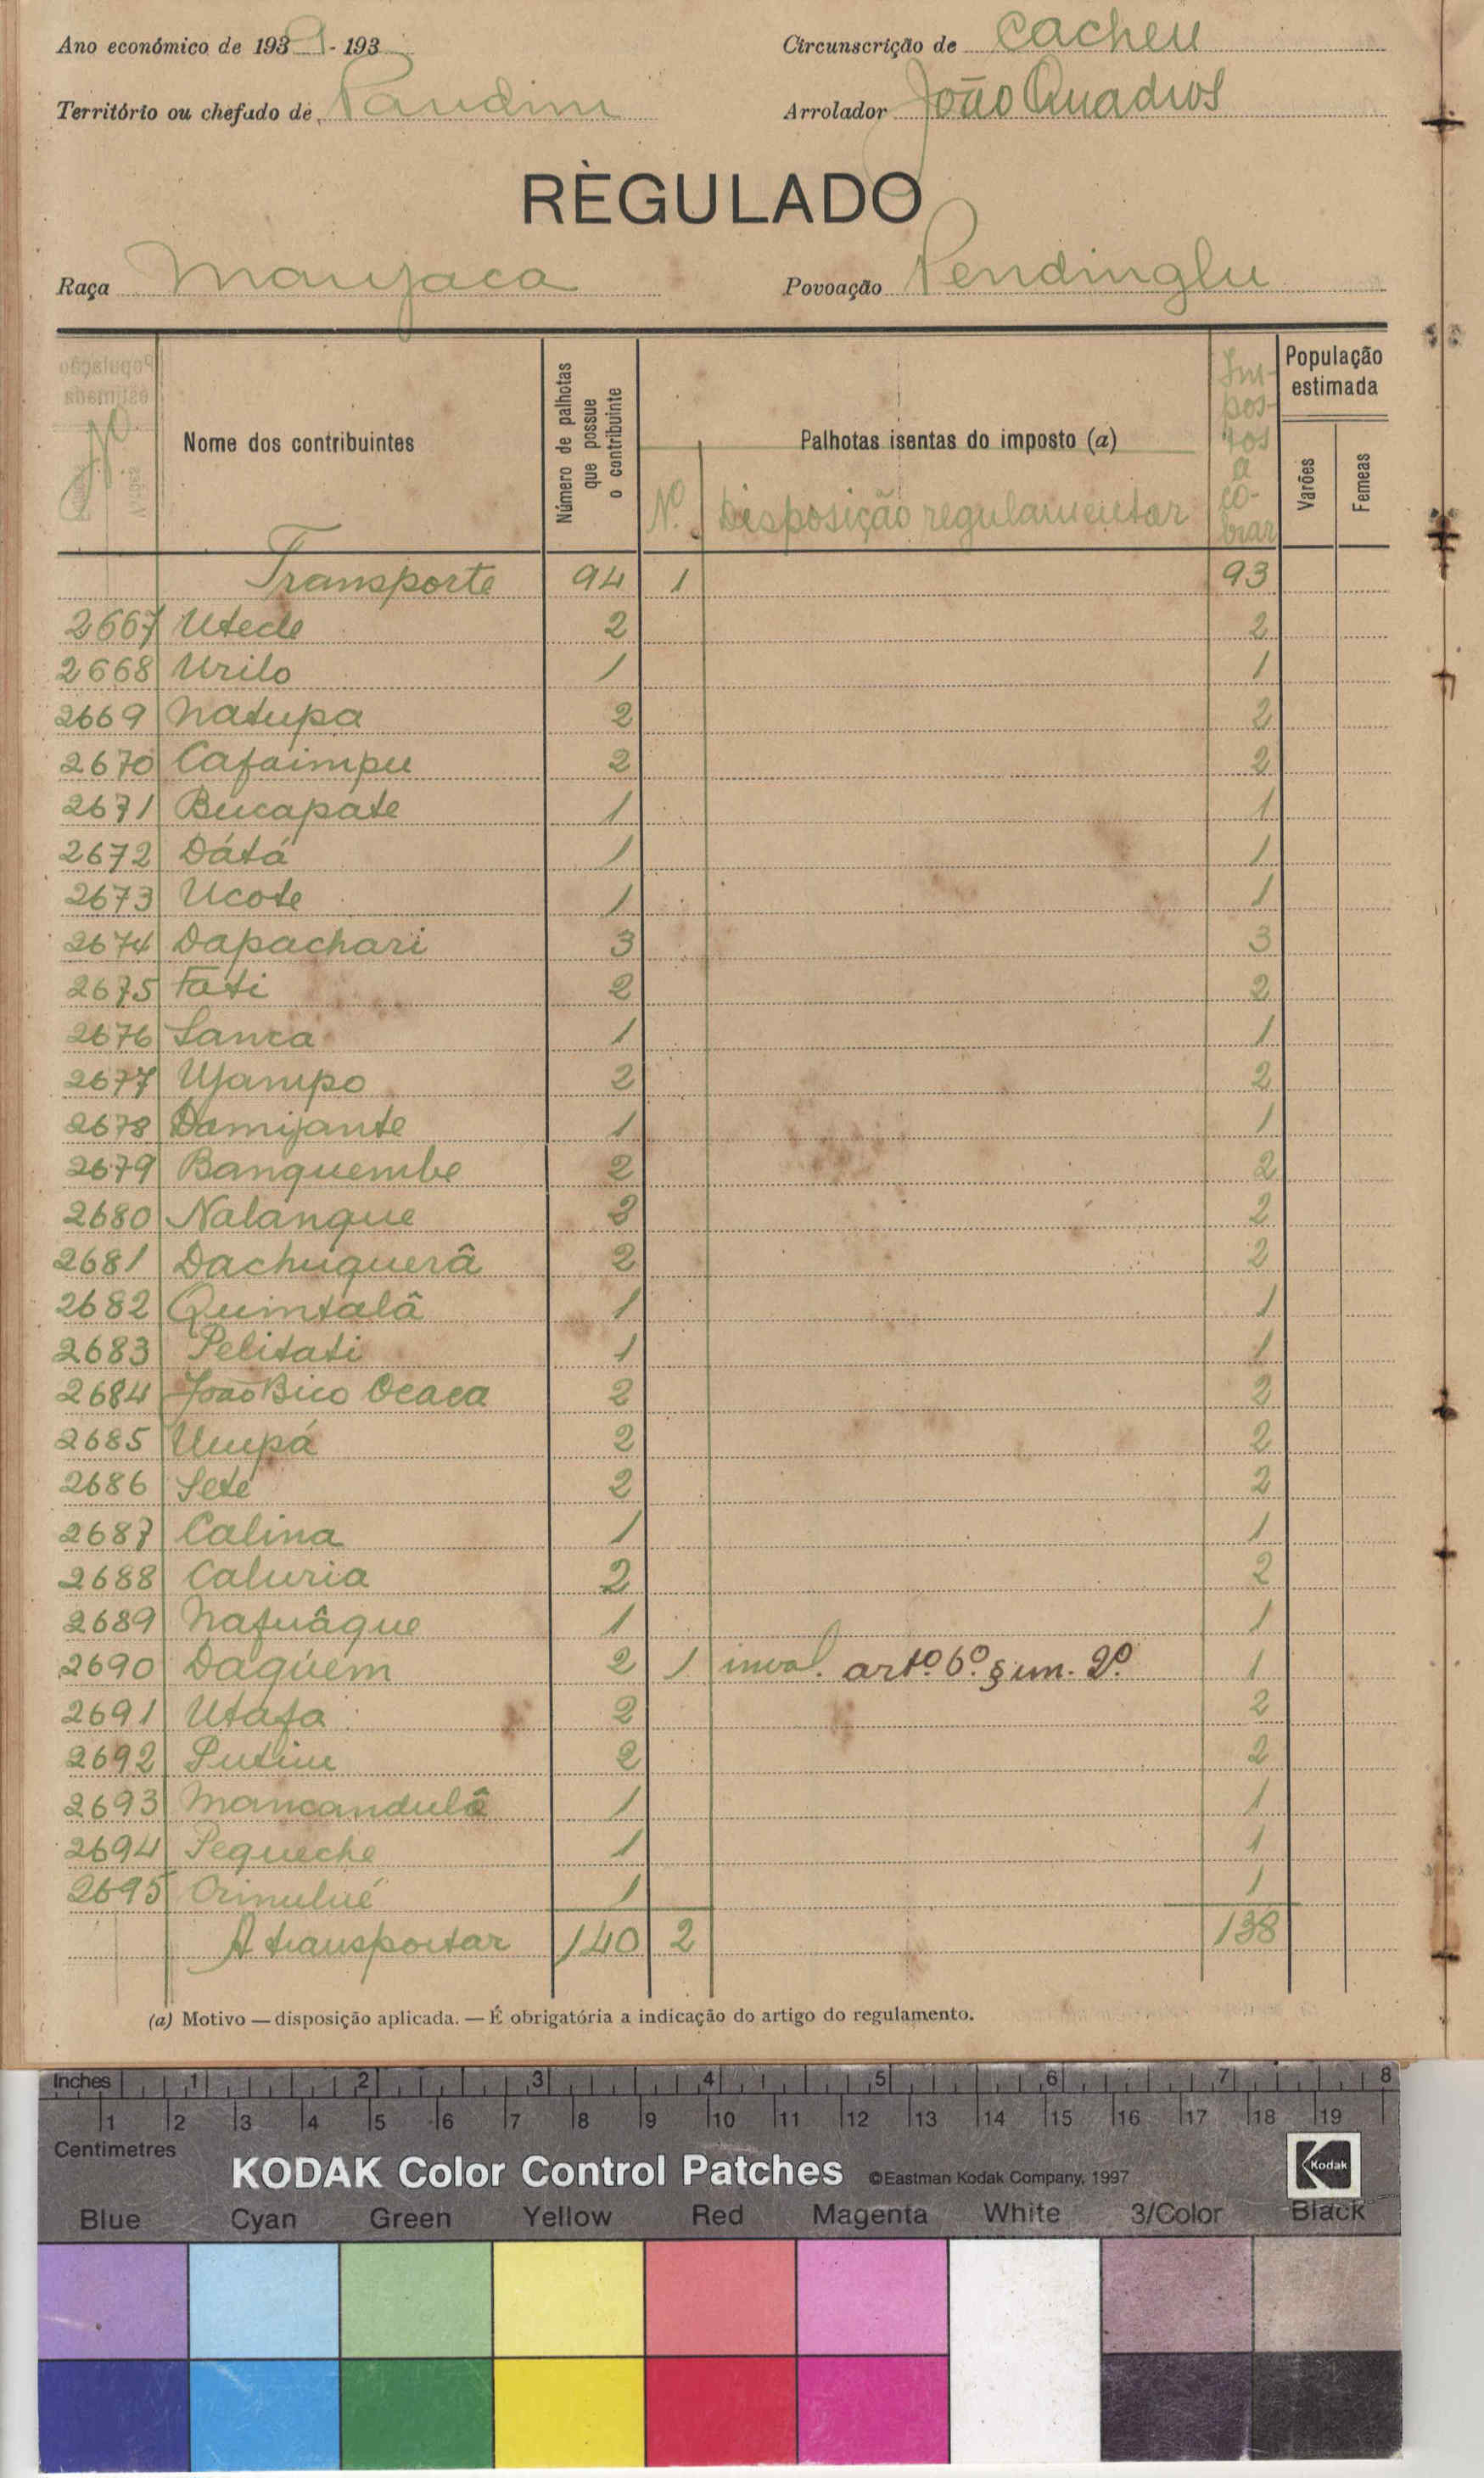 Ano económico de 1939-193 Circunscrição de Cacheu
Território ou chefado de Pandim Arrolador João Quadros
RÈGULADO
Raça Manjaca Povoação Pendinglu
Nome dos contribuintes
Número de palhotas que possue o contribuinte
Palhotas isentas do imposto (a)
Nº. Disposição regulamentar
Impostos a cobrar
População estimada
Varões Femeas
Transporte 94 1 93
2667 Utede 2 2
2668 Urilo 1 1
2669 Natupa 2 2
2670 Cafaimpu 2 2
2671 Bucapate 1 1
2672 Dátá 1 1
2673 Ucote 1 1
2674 Dapachari 3 3
2675 Fati 2 2
2676 Sanca 1 1
2677 Ujampo 2 2
2678 Damijante 1 1
2679 Banquembe 2 2
2680 Nalanque 2 2
2681 Dachuquerâ 2 2
2682 Quintalâ 1 1
2683 Pelitati 1 1
2684 João Bico Ocaca 2 2
2685 Umpá 2 2
2686 Sete 2 2
2687 Calina 1 1
2688 Caluria 2 2
2689 Nafuâque 1 1
2690 Daguem 2 1 inval. artº. 6º. § un. 2º. 1
2691 Utafa 2 2
2692 Putim 2 2
2693 Mancandulâ 1 1
2694 Pequeche 1 1
2695 Crimulué 1 1
A transportar 140 2 138
(a) Motivo — disposição aplicada. — É obrigatória a indicação do artigo do regulamento.
Inches 1 2 3 4 5 6 7 8
1 2 3 4 5 6 7 8 9 10 11 12 13 14 15 16 17 18 19
Centimetres
KODAK Color Control Patches ©Eastman Kodak Company, 1997 Kodak
Blue Cyan Green Yellow Red Magenta White 3/Color Black